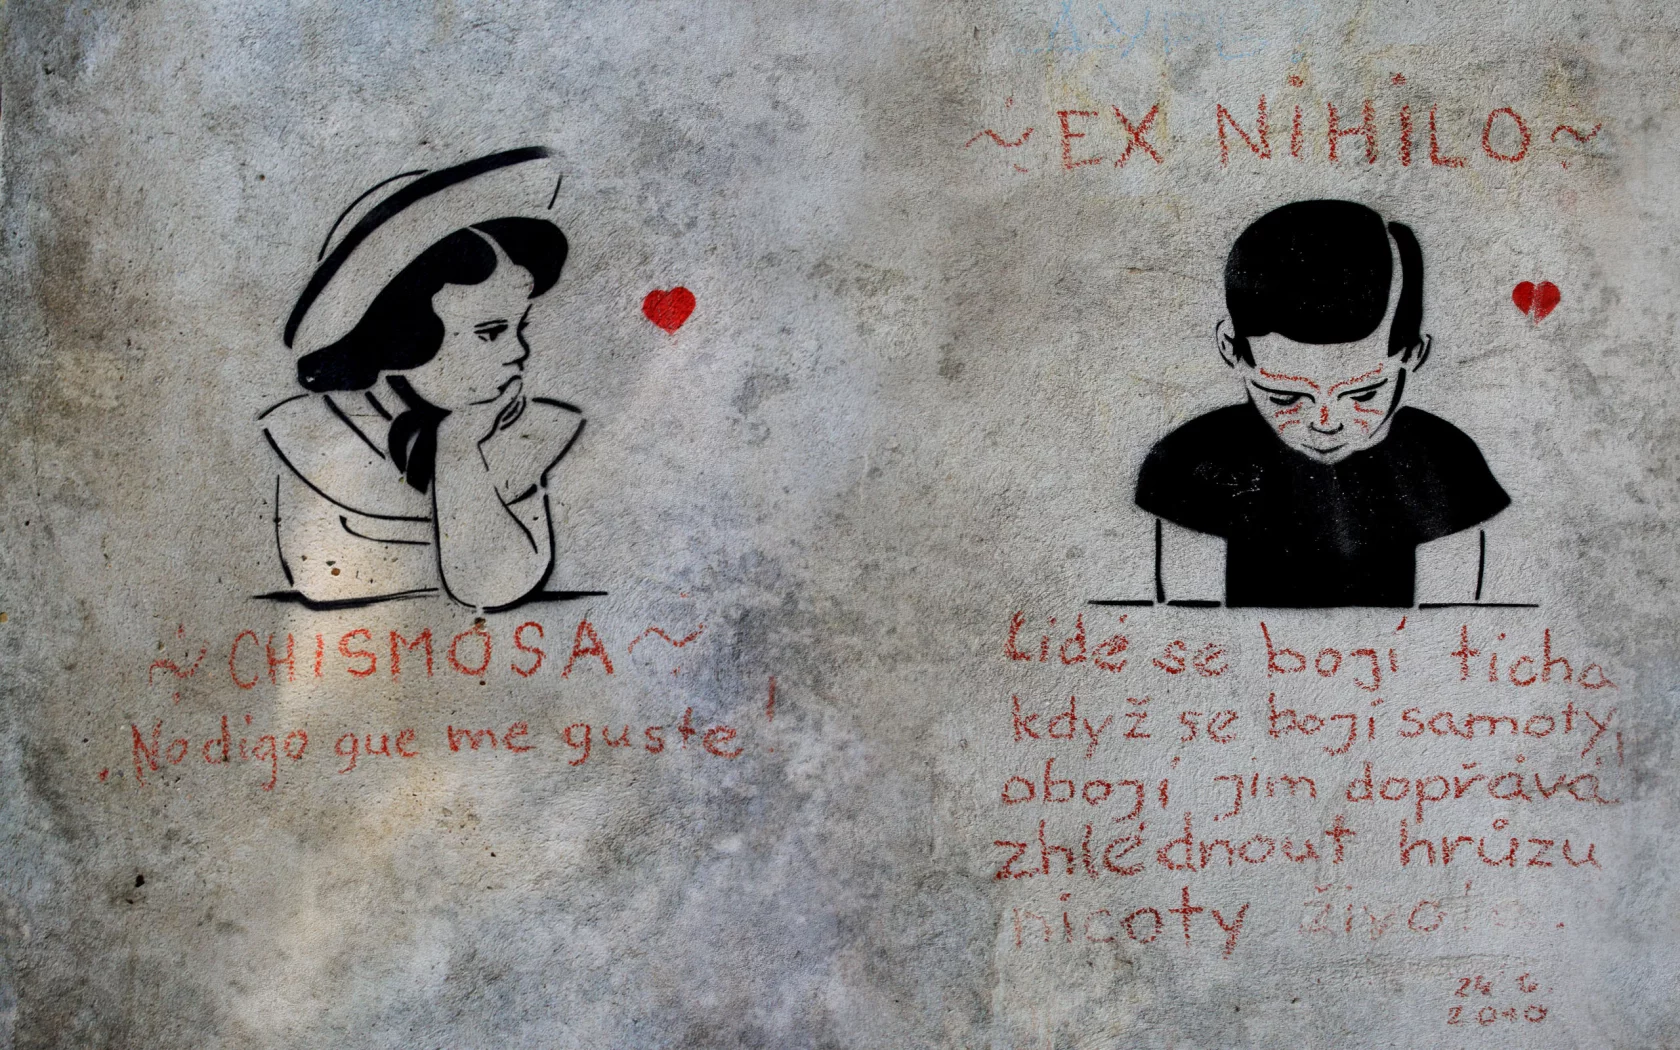 ~ CHISMOSA ~
No digo que me guste!
~ EX NIHILO ~
Lidé se bojí ticha
když se bojí samoty,
obojí jim dopřává
zhlédnout hrůzu
nicoty života.
2010